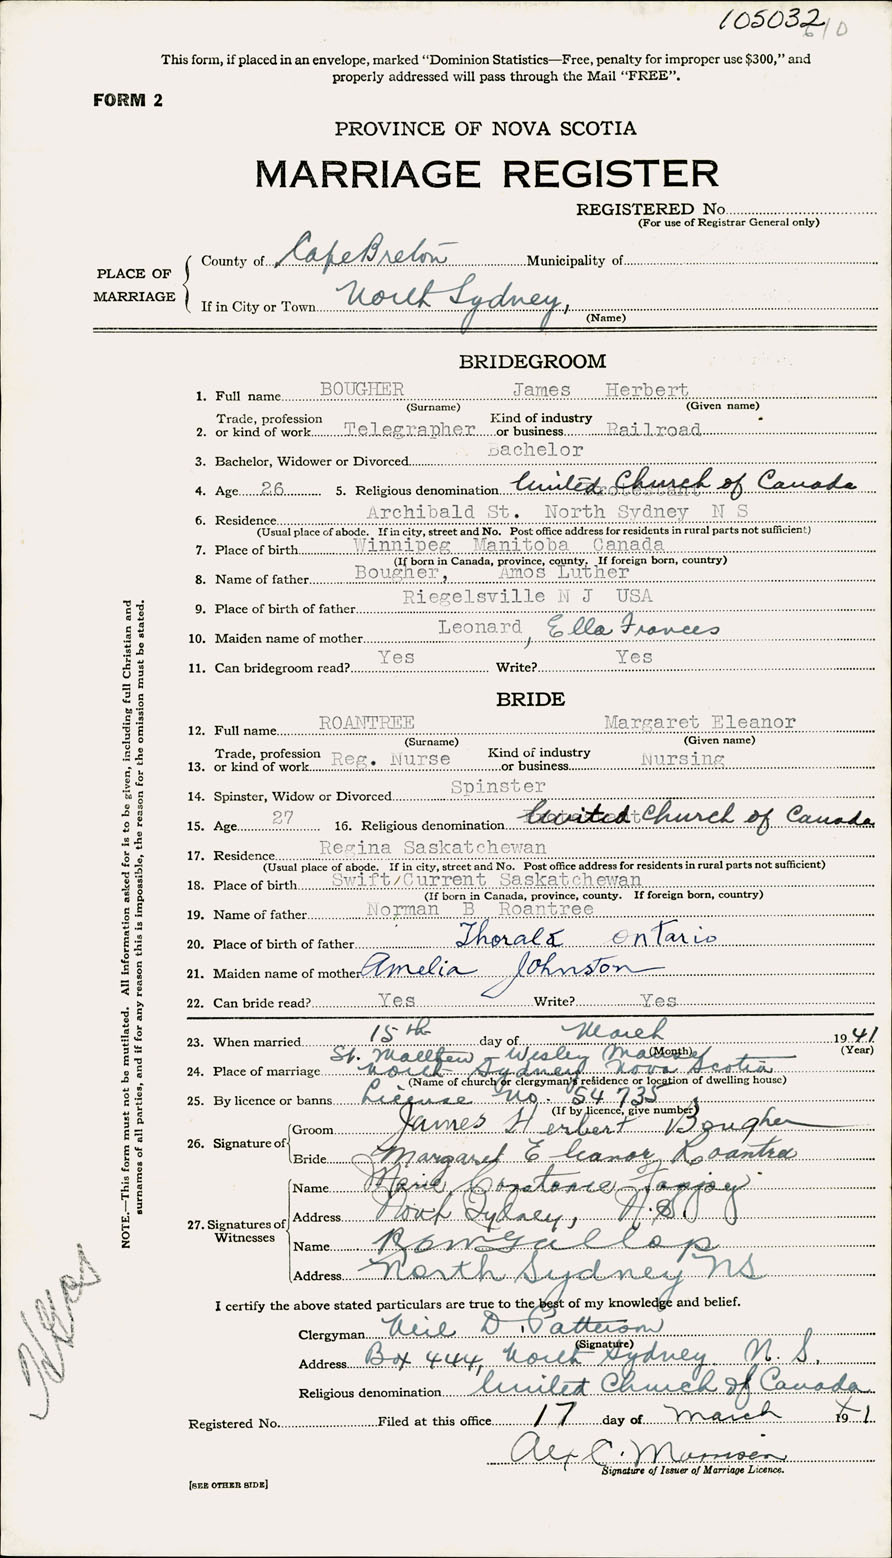 105032
This form, if placed in an envelope, marked “Dominion Statistics—Free, penalty for improper use $300,” and
properly addressed will pass through the Mail “FREE”.
FORM 2
PROVINCE OF NOVA SCOTIA
MARRIAGE REGISTER
REGISTERED No.
(For use of Registrar General only)
PLACE OF MARRIAGE
County of Cape Breton Municipality of
If in City or Town North Sydney,
(Name)
BRIDEGROOM
1. Full name BOUGHER James Herbert
(Surname) (Given name)
2. Trade, profession or kind of work Telegrapher Kind of industry or business Railroad
3. Bachelor, Widower or Divorced Bachelor
4. Age 26 5. Religious denomination Protestant United Church of Canada
6. Residence Archibald St. North Sydney N S
(Usual place of abode. If in city, street and No. Post office address for residents in rural parts not sufficient)
7. Place of birth Winnipeg Manitoba Canada
(If born in Canada, province, county. If foreign born, country)
8. Name of father Bougher, Amos Luther
9. Place of birth of father Riegelsville N J USA
10. Maiden name of mother Leonard, Ella Frances
11. Can bridegroom read? Yes Write? Yes
BRIDE
12. Full name ROANTREE Margaret Eleanor
(Surname) (Given name)
13. Trade, profession or kind of work Reg. Nurse Kind of industry or business Nursing
14. Spinster, Widow or Divorced Spinster
15. Age 27 16. Religious denomination United Church of Canada
17. Residence Regina Saskatchewan
(Usual place of abode. If in city, street and No. Post office address for residents in rural parts not sufficient)
18. Place of birth Swift/Current Saskatchewan
(If born in Canada, province, county. If foreign born, country)
19. Name of father Norman B Roantree
20. Place of birth of father Thorald Ontario
21. Maiden name of mother Amelia Johnston
22. Can bride read? Yes Write? Yes
23. When married 15th day of March 1941
(Month) (Year)
St. Matthew Wesley Manse
24. Place of marriage North Sydney Nova Scotia
(Name of church or clergyman's residence or location of dwelling house)
25. By licence or banns License No. 54735
(If by licence, give number)
26. Signature of
Groom James Herbert Bougher
Bride Margaret Eleanor Roantree
27. Signatures of Witnesses
Name Marie Constance
Address North Sydney, N.S.
Name Gallop
Address North Sydney NS
I certify the above stated particulars are true to the best of my knowledge and belief.
Clergyman Neil D. Patterson
(Signature)
Address Box 444, North Sydney. N. S.
Religious denomination United Church of Canada
Registered No. Filed at this office 17 day of March 1941
Alex C. Morrison
Signature of Issuer of Marriage Licence.
[SEE OTHER SIDE]
NOTE.—This form must not be mutilated. All information asked for is to be given, including full Christian and
surnames of all parties, and if for any reason this is impossible, the reason for the omission must be stated.